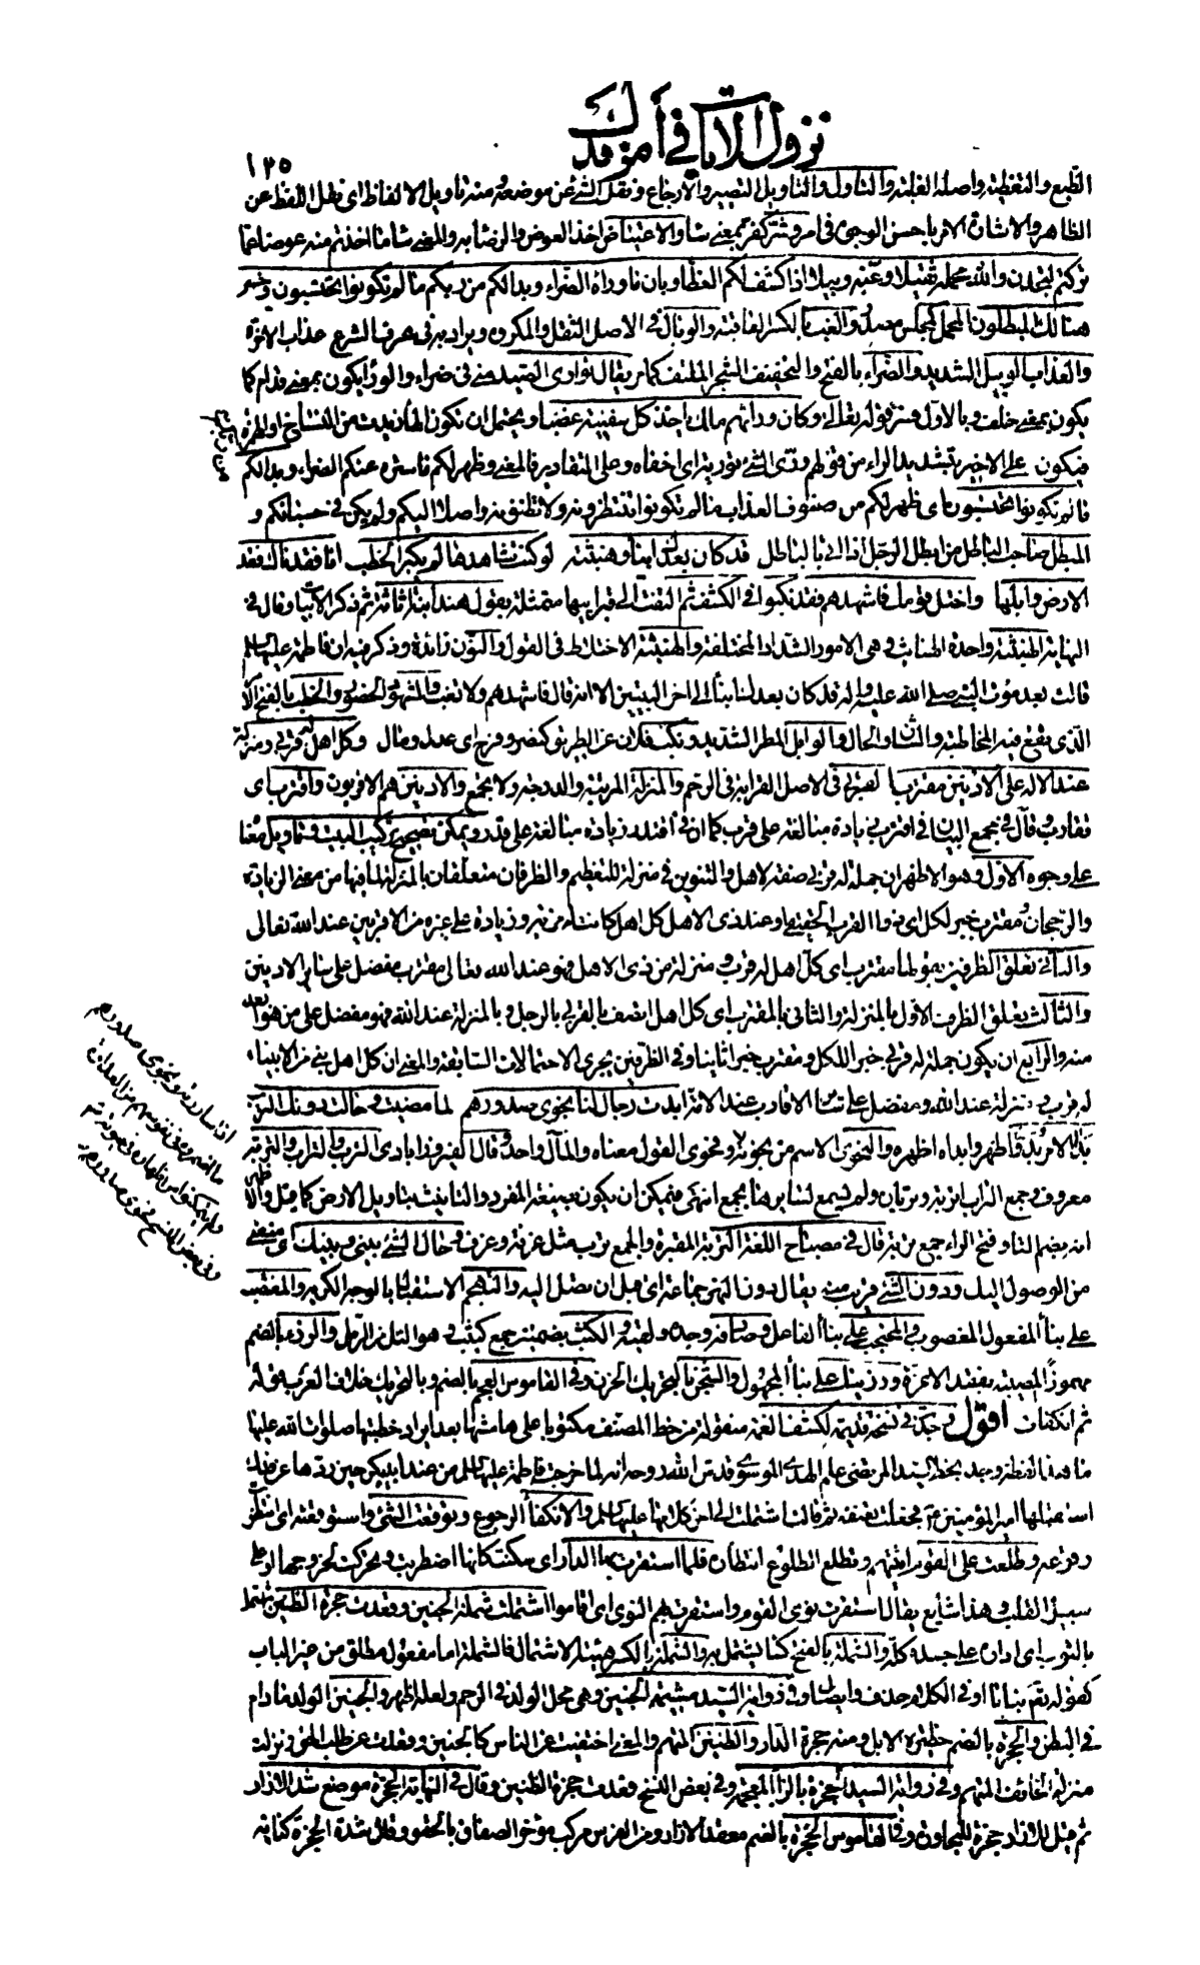 نزول الآيات في أمر فدك
١٣٥
الطبع والتغطية واصله الغلبة والتأول والتأويل التصيير والارجاع ونقل الشئ عن موضعه ومنه تاويل الالفاظ اى نقل اللفظ عن
الظاهر والاشارة الامر باحسن الوجوه فى امر وشر كفر بمعنى ساء والاعتياض اخذ العوض والرضا به والمعنى ساء ما اخذتم منه عوضا عما
تركتم لتجدن والله محمله ثقيلا وغبه وبيلا اذا كشف لكم الغطاء وبان ما وراءه الضراء وبدا لكم من ربكم ما لم تكونوا تحتسبون وخسر
هنالك المبطلون المحمل كمجلس مصدر والغب بالكسر العاقبة والوبال فى الاصل الثقل والمكروه ويراد به فى عرف الشرع عذاب الاخرة
والعذاب الوبيل الشديد والضراء بالفتح والتخفيف الشجر الملتف كما مر يقال توارى الصيد منى فى ضراء والوراء يكون بمعنى قدام كما
يكون بمعنى خلف وبالاول فسر قوله تعالى وكان وراءهم ملك ياخذ كل سفينة غصبا ويحتمل ان تكون الهاء زيدت من النساخ او الهمزة
فيكون على الاخير بتشديد الراء من قولهم ورى الشئ تورية اى اخفاه وعلى التقادير فالمعنى وظهر لكم ما ستره عنكم الضراء وبدا لكم
ما لم تكونوا تحتسبون اى ظهر لكم من صنوف العذاب ما لم تكونوا تنتظرونه ولا تظنونه واصلا اليكم ولم يكن فى حسبانكم و
المبطل صاحب الباطل من ابطل الرجل اذا اتى بالباطل قد كان بعدك انباء وهنبثة لو كنت شاهدها لم يكبر الخطب انا فقدناك فقد
الارض وابلها واختل قومك فاشهدهم فقد نكبوا فى الكشف ثم التفت الى قبر ابيها متمثلة بقول هند ابنة اثاثة ثم ذكر الابيات وقال فى
النهاية الهنبثة واحدة الهنابث وهى الامور الشداد المختلفة والهنبثة الاختلاط فى القول والنون زائدة وذكر فيه ان فاطمة عليها السلم
قالت بعد موت النبى صلى الله عليه واله قد كان بعدك انباء الى اخر البيتين الا انه قال فاشهدهم ولا تغب والشهود الحضور والخطب بالفتح الامر
الذى تقع فيه المخاطبة والشان والحال والوابل المطر الشديد ونكب فلان عن الطريق كنصر وفرح اى عدل ومال وكل اهل له قربى ومنزلة
عند الاله على الادنين مقترب القربى فى الاصل القرابة فى الرحم والمنزلة المرتبة والدرجة ولا تجمع والادنين هم الاقربون واقترب اى
تقارب وقال فى مجمع البيان فى اقترب زيادة مبالغة على قرب كما ان فى اقتدر زيادة مبالغة على قدر ويمكن تصحيح تركيب البيت وتاويل معناه
على وجوه الاول وهو الاظهر ان جملة له قربى صفة لاهل والتنوين فى منزلة للتعظيم والظرفان متعلقان بالمنزلة لما فيها من معنى الزيادة
والرجحان ومقترب خبر لكل اى ذو القرب الحقيقى او عند ذى الاهل كل اهل كانت له مزية وزيادة على غيره من الاقربين عند الله تعالى
والثانى تعلق الظرفين بقولها مقترب اى كل اهل له قرب ومنزلة من ذى الاهل فهو عند الله تعالى مقترب مفضل على سائر الادنين
والثالث تعلق الظرف الاول بالمنزلة والثانى بالمقترب اى كل اهل اتصف بالقربى بالرجل وبالمنزلة عند الله فهو مفضل على من هو ابعد
منه والرابع ان يكون جملة له قربى خبرا للكل ومقترب خبرا ثانيا وفى الظرفين يجرى الاحتمالات السابقة والمعنى ان كل اهل نبى من الانبياء
له قرب ومنزلة عند الله ومفضل على سائر الاقارب عند الامة ابدت رجال لنا نجوى صدورهم لما مضيت وحالت دونك الترب
بدا الامر بدوا ظهر وابداه اظهره والنجوى الاسم من نجوته وفحوى القول معناه والمآل واحد وقال الفيروزابادى الترب والتراب والتربة
معروف وجمع التراب اتربة وتربان ولم يسمع لسائرها بجمع انتهى فيمكن ان يكون بصيغة المفرد والتانيث بتاويل الارض كما قيل والاظهر
انه بضم التاء وفتح الراء جمع تربة قال فى مصباح اللغة التربة المقبرة والجمع ترب مثل غرفة وغرف وحال الشئ بينى وبينك اى منعنى
من الوصول اليك ودون الشئ قريب منه يقال دون النهر جماعة اى قبل ان تصل اليه والتهجم الاستقبال بالوجه الكريه والمغتصب
على بناء المفعول المغصوب والمحتجب على بناء الفاعل
مهموزا المصيبة بفقد الاعزة ورزينا على بناء المجهول والشجن بالتحريك الحزن وفى القاموس العجم بالضم وبالتحريك خلاف العرب قوله
ثم انكفات اقول وجدت فى نسخة قديمة لكشف الغمة منقولة من خط المصنف مكتوبا على هامشها بعد ايراد خطبتها صلوات الله عليها
ما هذا لفظه وجد بخط السيد المرتضى علم الهدى الموسوى قدس الله روحه انه لما خرجت فاطمة عليها السلم من عند ابى بكر حين ردها عن فدك
استقبلها امير المؤمنين ع فجعلت تعنفه ثم قالت اشتملت الى اخر كلامها عليها السلم والانكفاء الرجوع وتوقعت الشئ واستوقعته اى انتظرت
وقوعه وطلعت على القوم اتيتهم وتطلع الطلوع انتظاره فلما استقرت بها الدار اى سكنت كانها اضطربت وتحركت لخروجها او على
سبيل القلب وهذا شايع يقال استقرت نوى القوم واستقرت بهم النوى اى اقاموا اشتملت شملة الجنين وقعدت حجرة الظنين اشتمل
بالثوب اى اداره على جسده كله والشملة بالفتح كساء يشتمل به والشملة بالكسر هيئة الاشتمال فالشملة اما مفعول مطلق من غير الباب
كقوله تعالى نباتا او فى الكلام حذف وايصال وفى رواية السيد مشيمة الجنين وهى محل الولد فى الرحم ولعله اظهر والجنين الولد ما دام
فى البطن والحجرة بالضم حظيرة الابل ومنه حجرة الدار والظنين المتهم والمعنى اختفيت عن الناس كالجنين وقعدت عن طلب الحق ونزلت
منزلة الخائف المتهم وفى رواية السيد الحجزة بالزاء المعجمة وفى بعض النسخ قعدت حجزة الظنين وقال فى النهاية الحجزة موضع شد الازار
ثم قيل للازار حجزة للمجاورة وفى القاموس الحجزة بالضم معقد الازار ومن الفرس مركب مؤخر الصفاق بالحقو وقال شدة الحجزة كناية